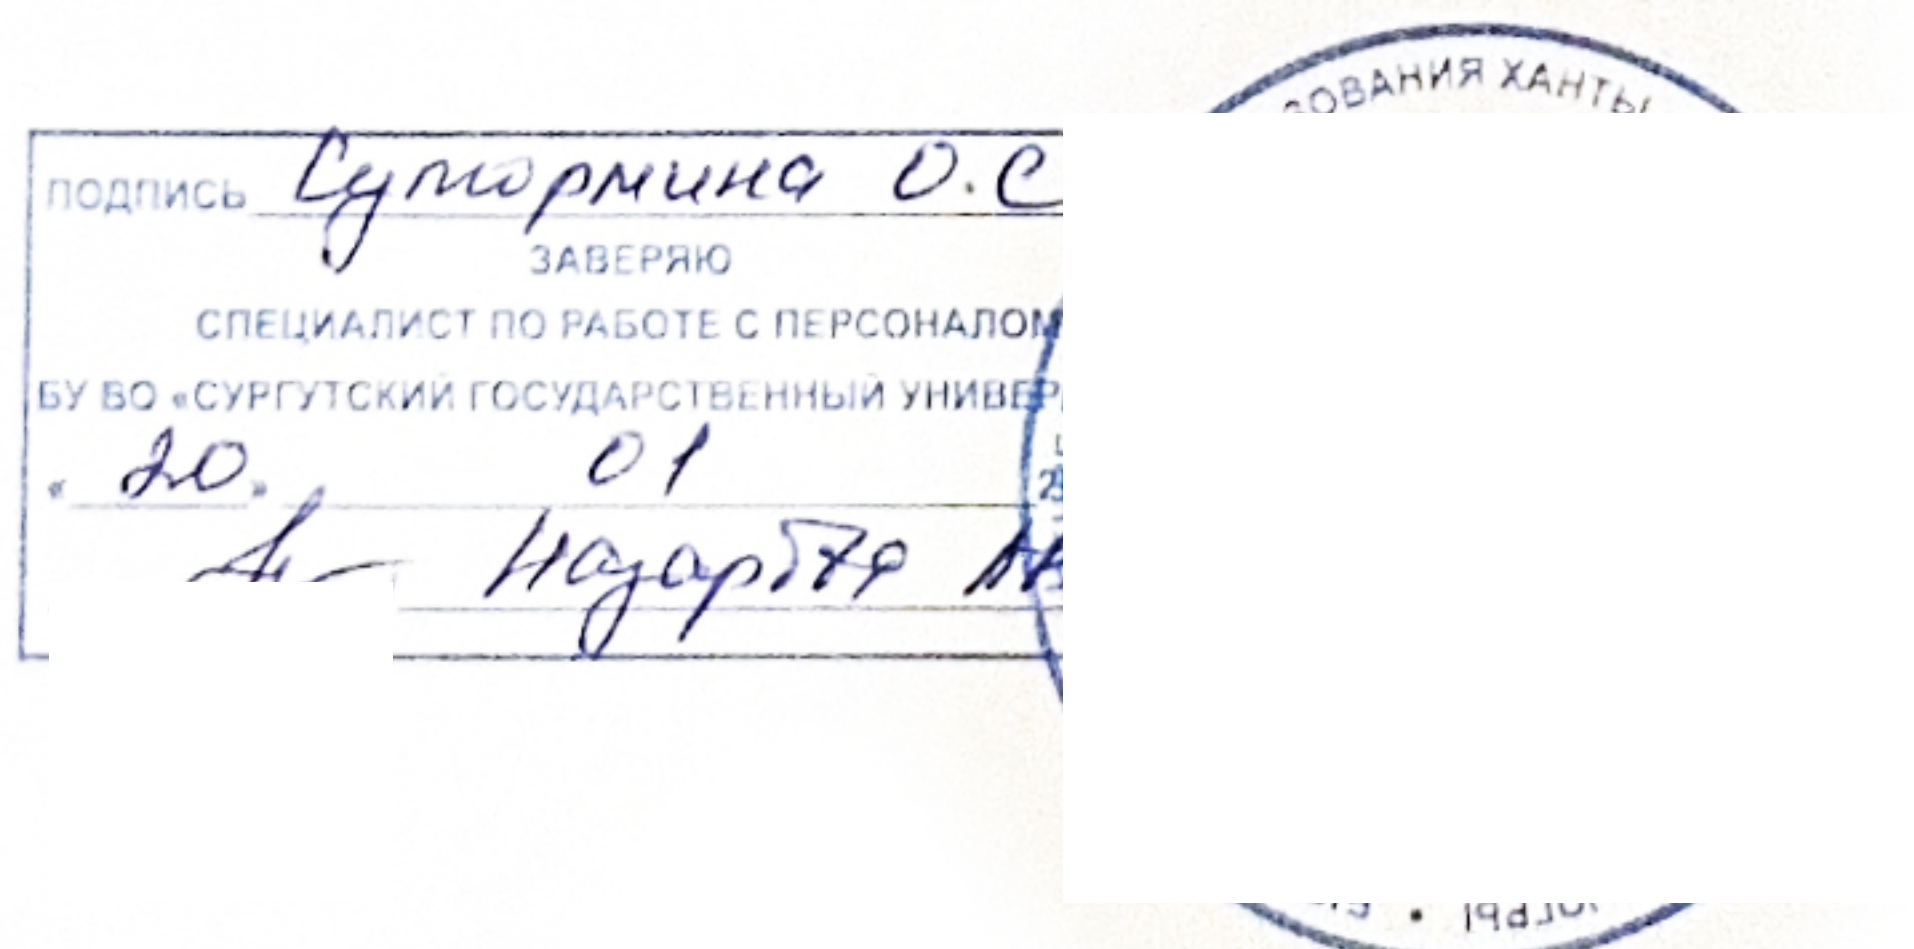 ЗОВАНИЯ ХАНТЫ
ПОДПИСЬ Сутормина О.С
ЗАВЕРЯЮ
СПЕЦИАЛИСТ ПО РАБОТЕ С ПЕРСОНАЛОМ
БУ ВО «СУРГУТСКИЙ ГОСУДАРСТВЕННЫЙ УНИВЕР
« 20 » 01